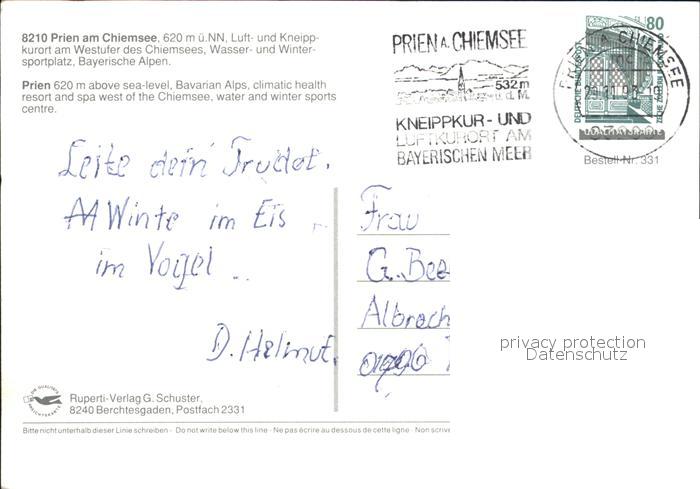 8210 Prien am Chiemsee, 620 m ü.NN, Luft- und Kneipp-
kurort am Westufer des Chiemsees, Wasser- und Winter-
sportplatz, Bayerische Alpen.
Prien 620 m above sea-level, Bavarian Alps, climatic health
resort and spa west of the Chiemsee, water and winter sports
centre.
PRIEN A. CHIEMSEE
532 m
ü. d. M.
KNEIPPKUR- UND
LUFTKURORT AM
BAYERISCHEN MEER
PRIEN A. CHIEMSEE
80
DEUTSCHE BUNDESPOST
QUALITÄTSKARTE
Bestell-Nr. 331
dein
Winte im Eis
im Vogel
D. Helmut.
Frau
G. Bez
Albrech
privacy protection
Datenschutz
Ruperti-Verlag G. Schuster,
8240 Berchtesgaden, Postfach 2331
Bitte nicht unterhalb dieser Linie schreiben - Do not write below this line - Ne pas écrire au dessous de cette ligne - Non scrive